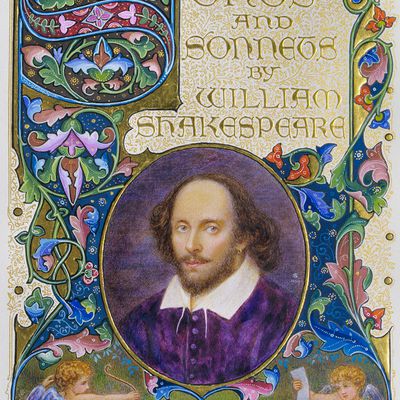 SONGS
AND
SONNETS
BY
WILLIAM
SHAKESPEARE